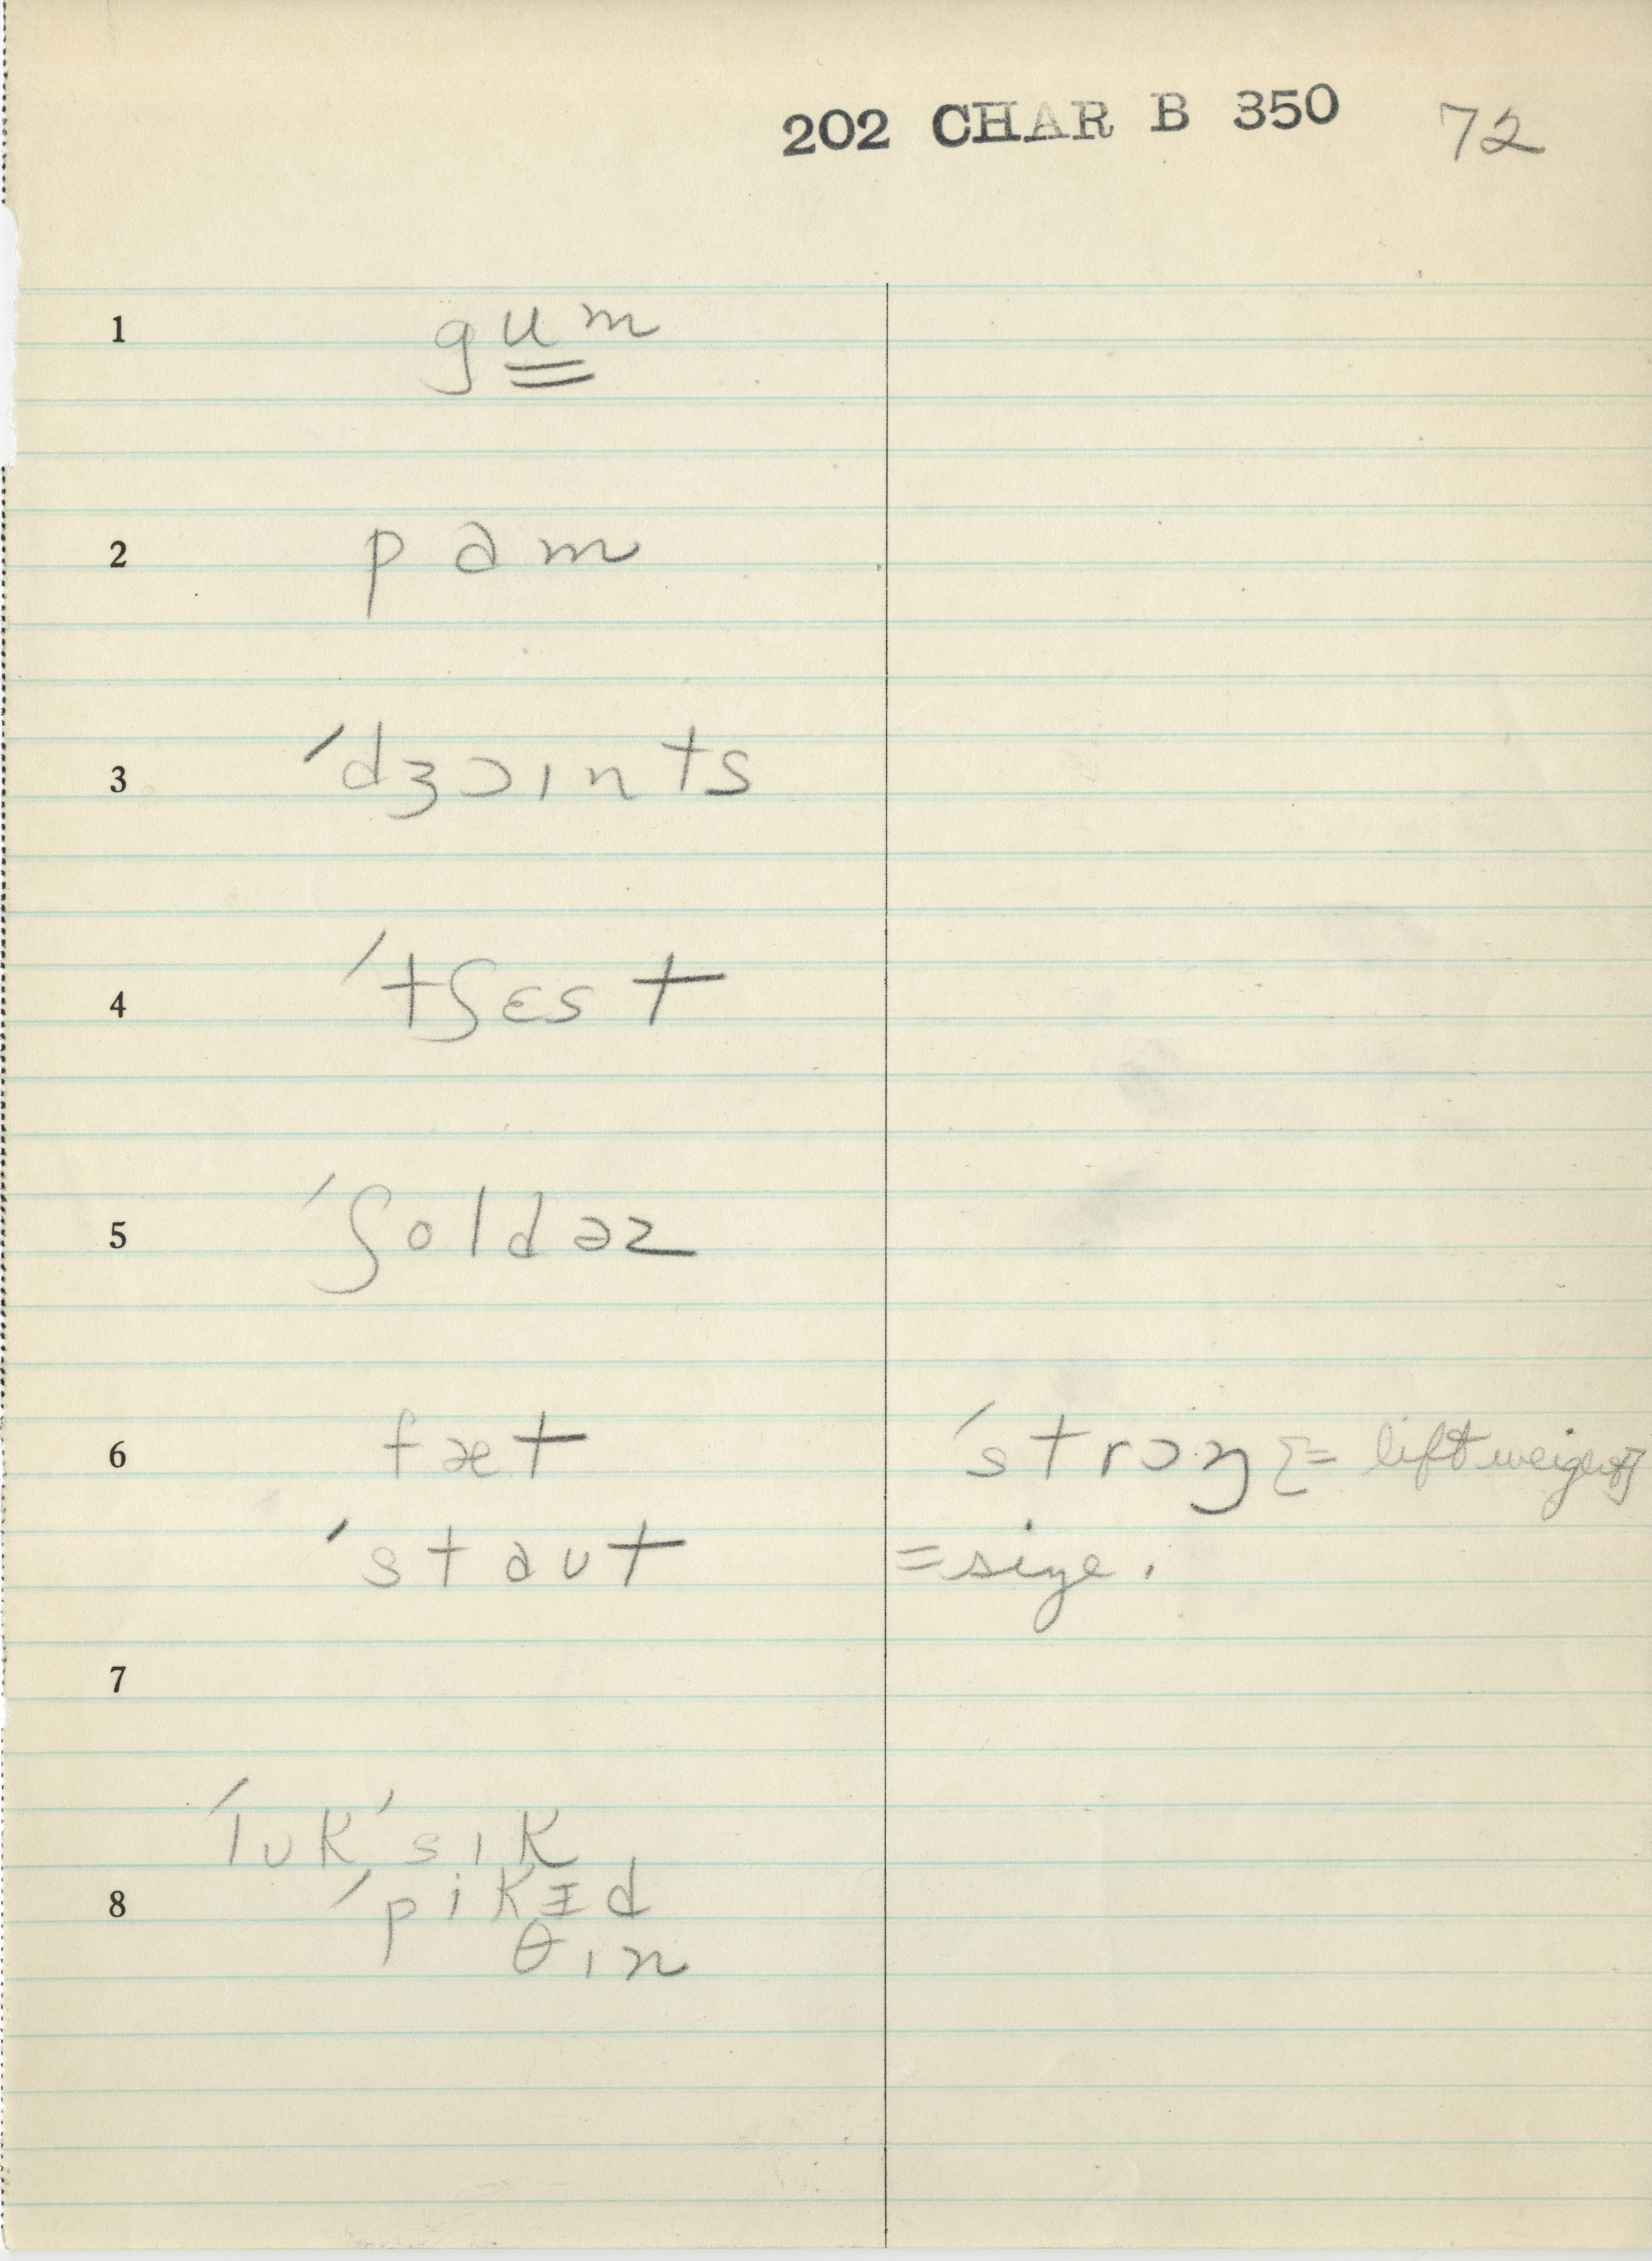 202 CHAR B 350 72
1 gum
2 pɑm
3 ˈdʒɔɪnts
4 ˈtʃɛst
5 ˈʃoldəz
6 fæt ˈstrɔŋ = lift weights
ˈstaʊt = size.
7
ˈlʊkˈsɪk
8 ˈpikɪd
θɪn